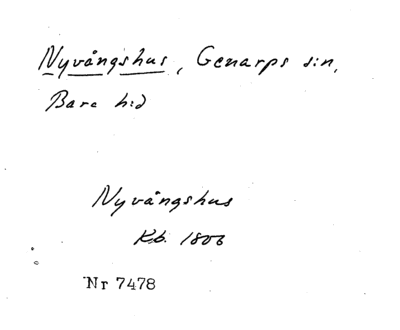 Nyvångshus, Genarps s:n,
Bara h:d
Nyvångshus
Kb. 1806
Nr 7478